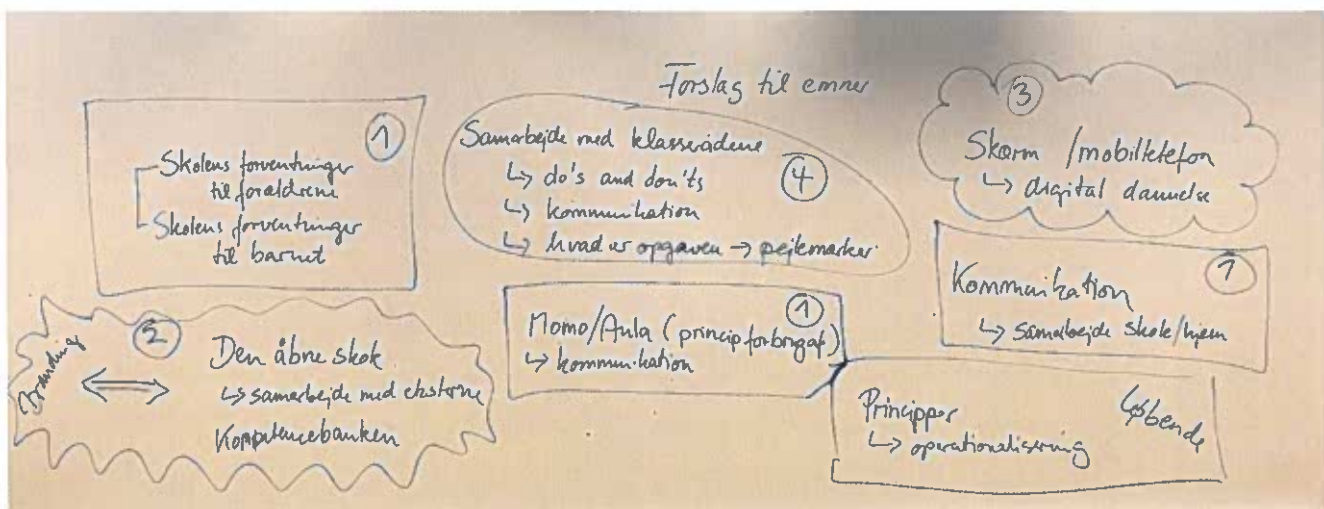 Forslag til emner
①
Skolens forventninger
til forældrene
Skolens forventninger
til barnet
Samarbejde med klasserådene
④
↳ do's and don'ts
↳ kommunikation
↳ hvad er opgaven → pejlemærker
③
Skærm /mobiltelefon
↳ digital dannelse
Branding
②
Den åbne skole
↳ samarbejde med eksterne
Kompetencebanken
①
Momo/Aula (princip for brug af)
↳ kommunikation
①
Kommunikation
↳ samarbejde skole/hjem
Principper
løbende
↳ operationalisering